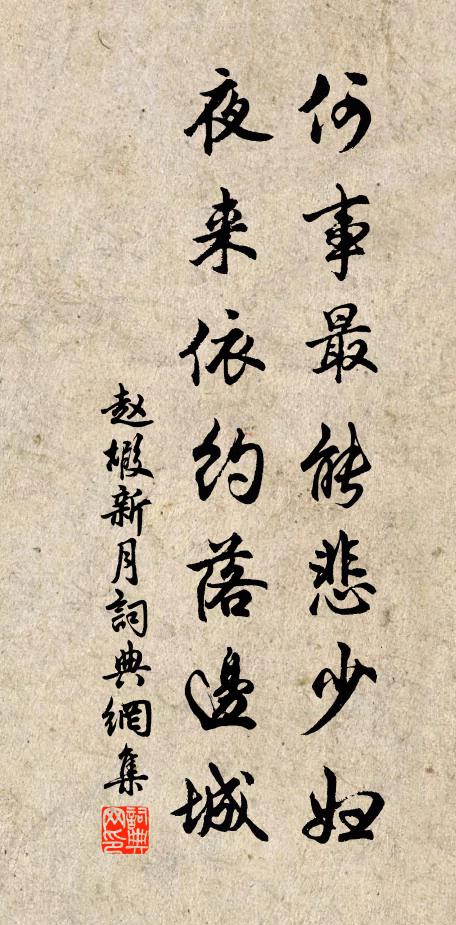 何事最能悲少妇
夜来依约落邊城
赵嘏新月詞典網集
詞典网印